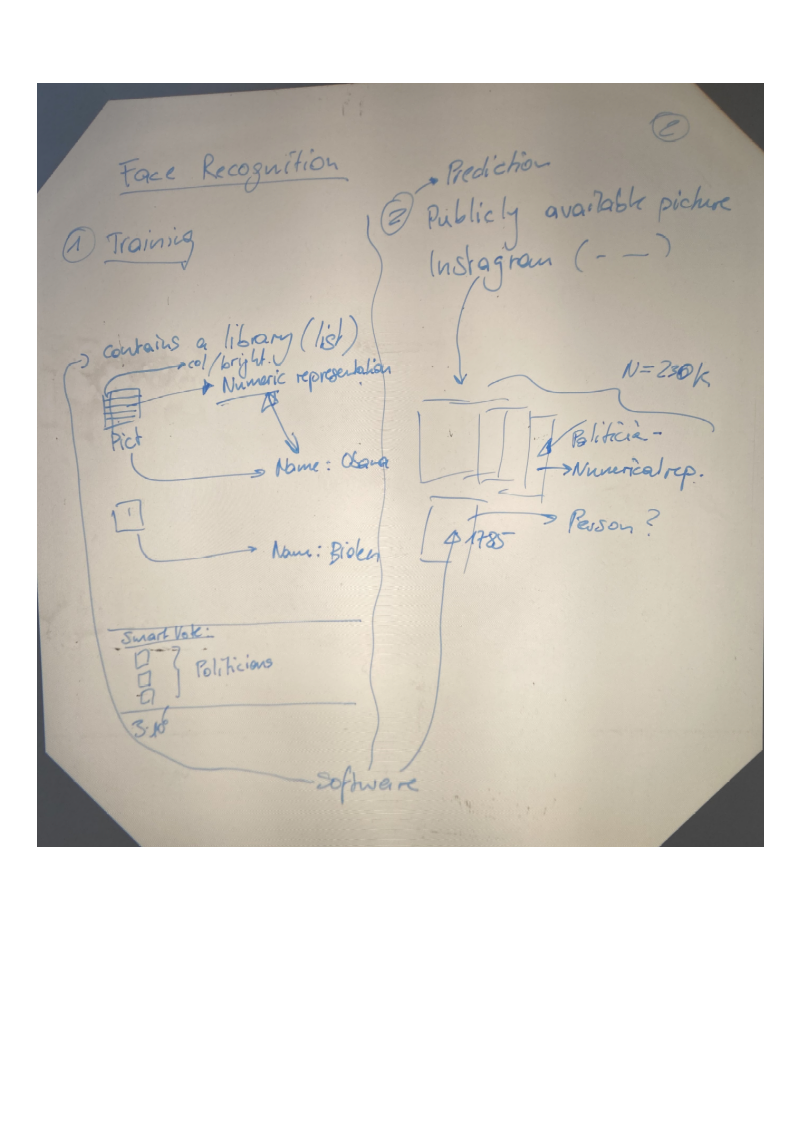 Face Recognition
1 Training
contains a library (list)
col/bright.
Numeric representation
Pict
Name: Obama
Name: Biden
Smart Vote:
Politicians
3·10⁶
Software
2
Prediction
Publicly available picture
Instagram (- —)
N=230k
Politicia-
Numerical rep.
1785
Person?